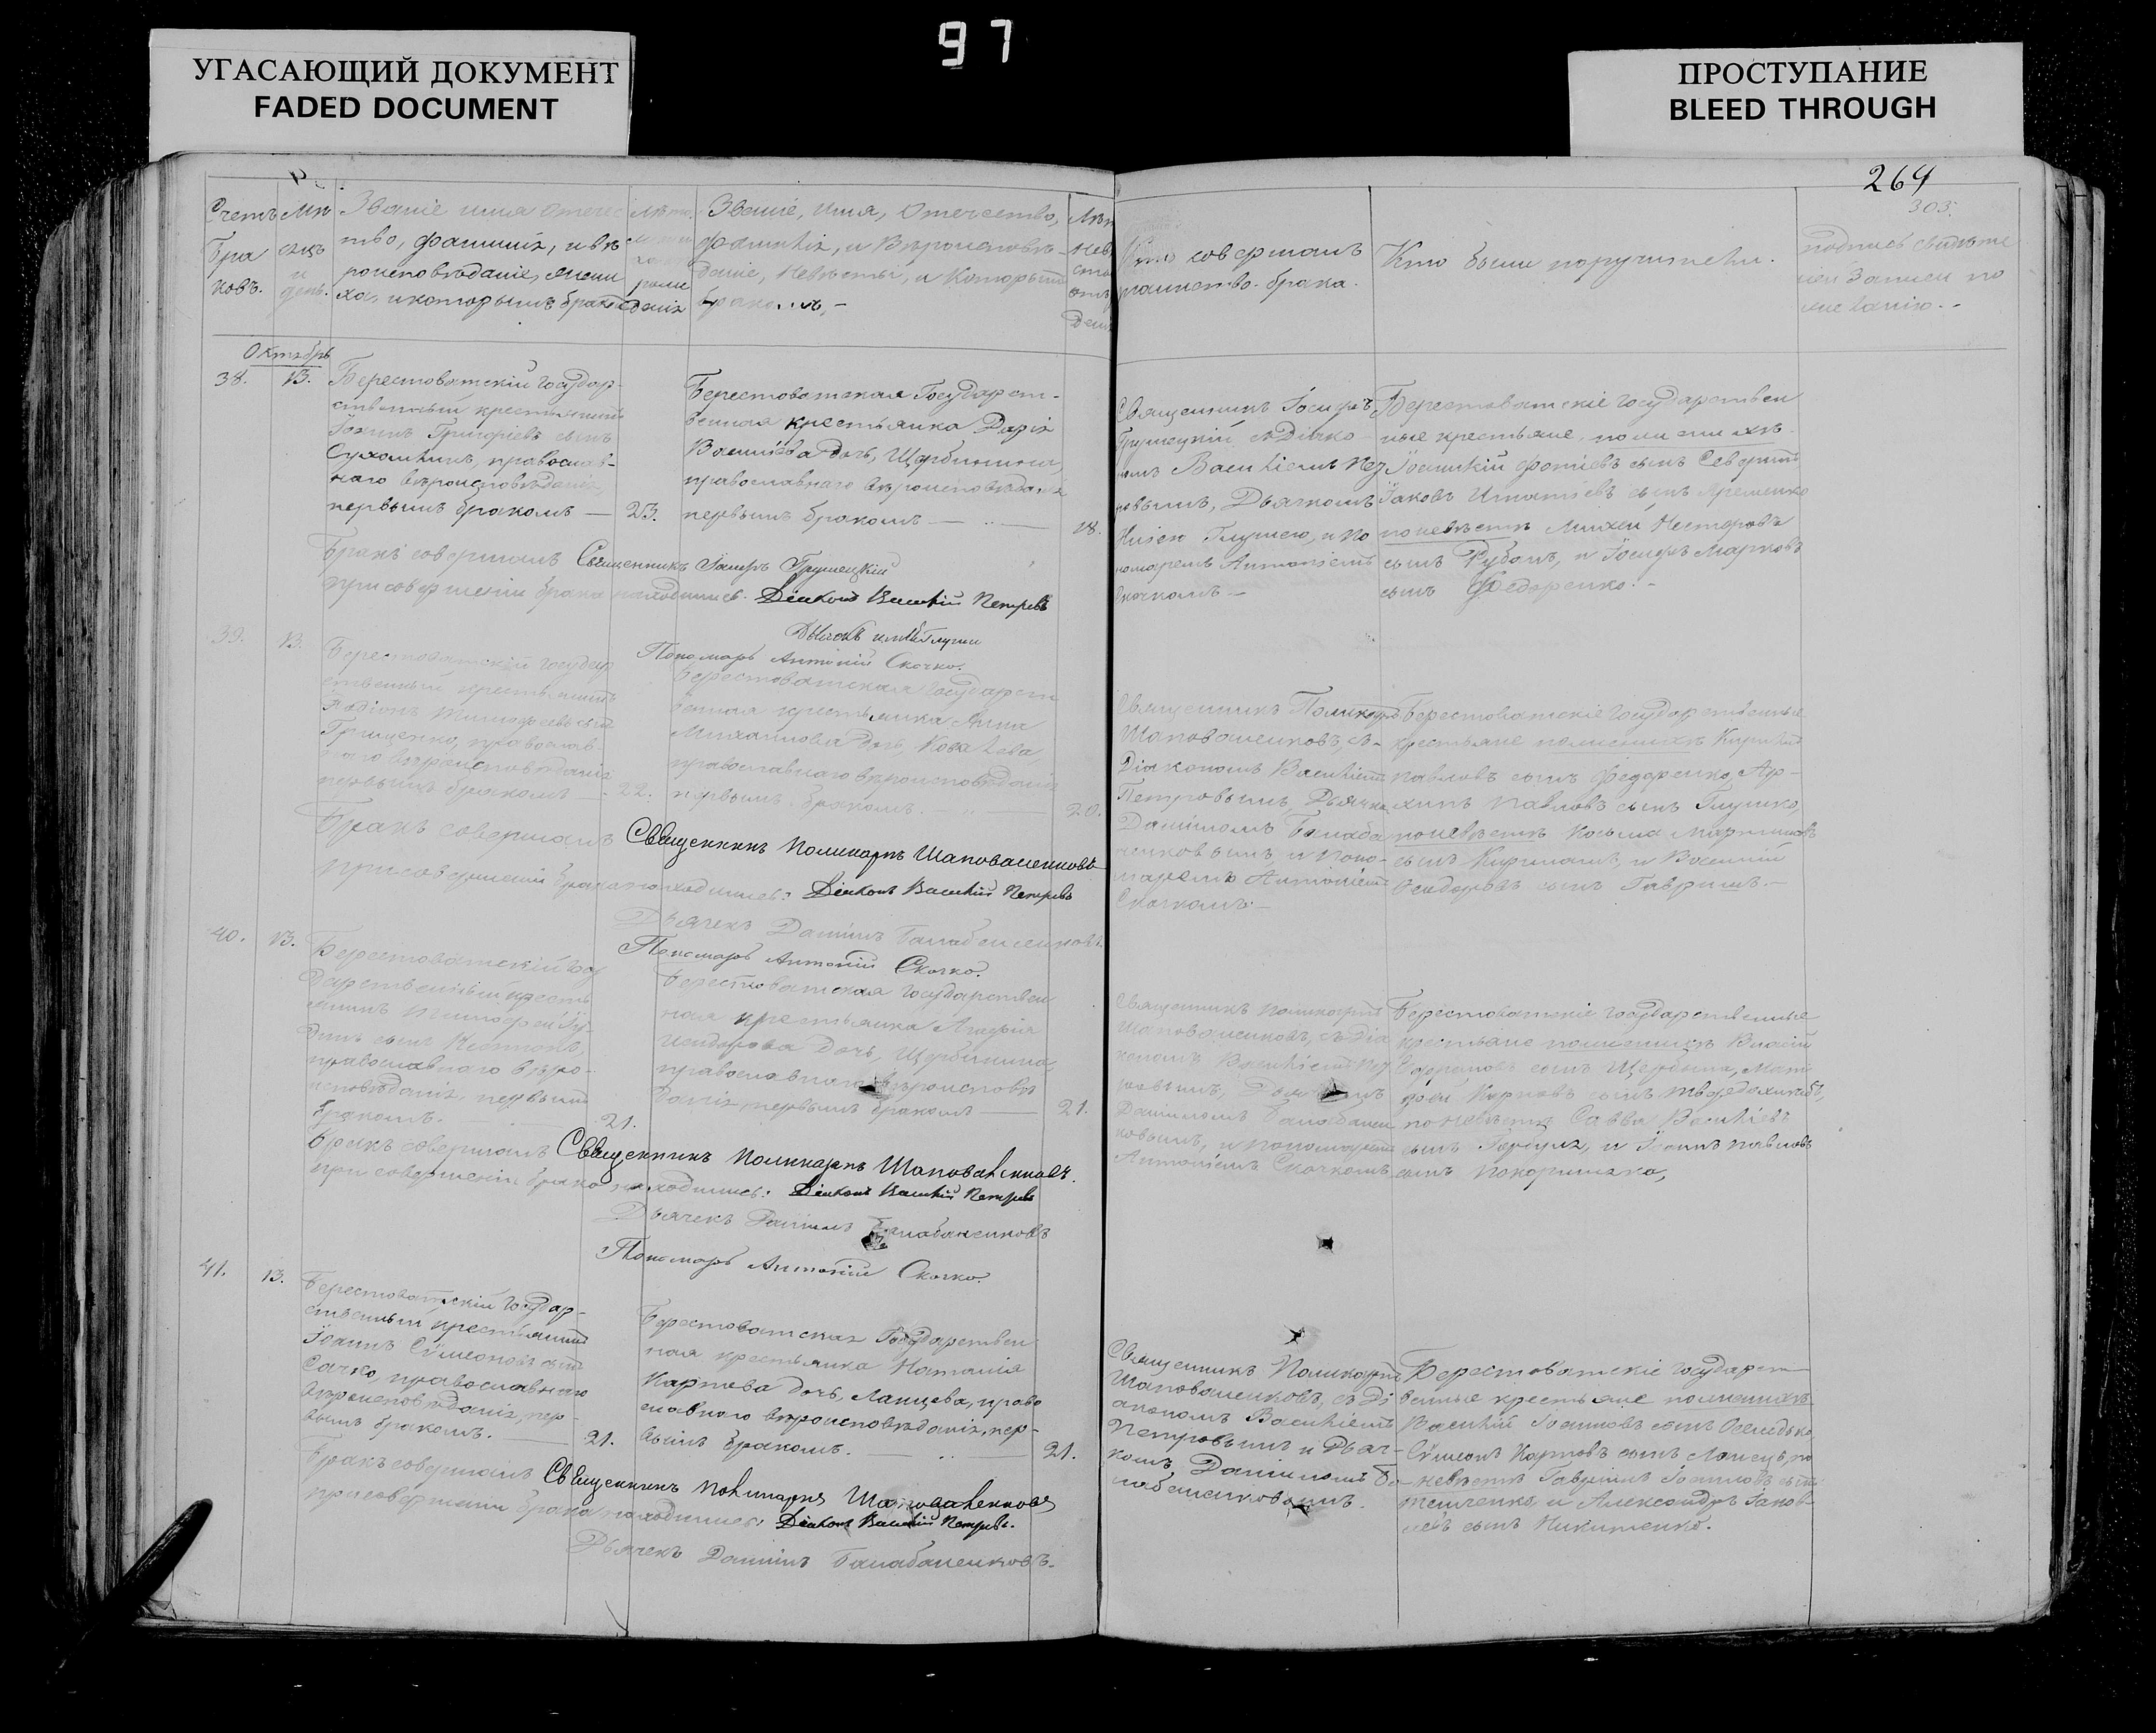 97
УГАСАЮЩИЙ ДОКУМЕНТ
FADED DOCUMENT
ПРОСТУПАНИЕ
BLEED THROUGH
264
303.
Счетъ
бра
ковъ.
Мѣ
сяцъ
и
день.
Званіе имя отечес
тво, фамилія, и вѣ
роисповѣданіе, жени
ха, и которымъ бракомъ
Лѣта
рож
денія
Званіе, имя, отечество,
фамилія, и вѣроисповѣ-
даніе, невѣсты, и которымъ
бракомъ,-
Лѣта
Кто совершалъ
таинство брака.
Кто были поручители.
подпись свидѣте
лей записи по
желанію.-
Октябрь
38.
13.
Берестоватскій государ-
ственный крестьянинъ
Григоріевъ сынъ
православ-
наго вѣроисповѣданія,
первымъ бракомъ —
23.
Берестоватская Государст-
венная крестьянка Дарія
Василіева дочь, Щербинина,
православнаго вѣроисповѣданія
первымъ бракомъ —
18.
Священникъ Іосифъ
Грушецкій, съ Діако
номъ Василіемъ Пет
ровымъ, Дьячкомъ
Глушею, и По
номаремъ Антоніемъ
Скочкомъ —
Берестоватскіе государствен
ные крестьяне, по женихѣ
сынъ
Іаковъ Игнатіевъ сынъ Яременко
по невѣстѣ Михей Несторовъ
сынъ Рубанъ, и Іосифъ Марковъ
сынъ Федоренко.-
Бракъ совершалъ Священникъ Іосифъ Грушецкій
при совершеніи брака находились: Діаконъ Василій Петровъ
Дьячокъ Глуши
Пономарь Антоній Скочко.
39.
13.
Берестоватскій государ
ственный крестьянинъ
Родіонъ Тимофеевъ сынъ
Грищенко, православ-
наго вѣроисповѣданія
первымъ бракомъ —
22.
Берестоватская государст
венная крестьянка Анна
Михаилова дочь, Ковалева,
православнаго вѣроисповѣданія
первымъ бракомъ. —
20.
Священникъ Поликарпъ
Шаповаленковъ, съ-
Діакономъ Василіемъ
Петровымъ, Дьячко
Даніиломъ Балаба
ненковымъ, и Поно-
маремъ Антоніемъ
Скочкомъ.-
Берестоватскіе государственные
крестьяне по женихѣ
Павловъ сынъ Федоренко, Ар-
хипъ Павловъ сынъ Глушко,
по невѣстѣ Косьма Мартиновъ
сынъ и Василій
сынъ Гавришъ.-
Бракъ совершалъ Священникъ Поликарпъ Шаповаленковъ
при совершеніи брака находились: Діаконъ Василій Петровъ
Дьячекъ Даніилъ Балабаненковъ.
Пономарь Антоній Скочко.
40.
13.
Берестоватскій госу
дарственный кресть
янинъ Тимофей
сынъ
православнаго вѣро-
исповѣданія, первымъ
бракомъ.
21.
Берестоватская государствен
ная крестьянка Агафія
Исидорова дочь, Щербинина,
православнаго вѣроисповѣ
данія, первымъ бракомъ —
21.
Священникъ Поликарпъ
Шаповаленковъ, съ Діа
кономъ Василіемъ Пет
ровымъ, Дьячкомъ
Даніиломъ Балабанен
ковымъ, и пономаремъ
Антоніемъ Скочкомъ,
Берестоватскіе государственные
крестьяне по женихѣ Власій
сынъ Щербина, Мат
фей Карповъ сынъ
по невѣстѣ Савва Василіевъ
сынъ и Іоаннъ Павловъ
сынъ
Бракъ совершалъ Священникъ Поликарпъ Шаповаленковъ.
при совершеніи брака находились: Діаконъ Василій Петровъ
Дьячекъ Даніилъ Балабаненковъ
Пономарь Антоній Скочко.
41.
13.
Берестоватскій государ-
ственный крестьянинъ
Іоаннъ Сѵмеоновъ сынъ
Сачко, православнаго
вѣроисповѣданія, пер-
вымъ бракомъ. —
21.
Берестоватская Государствен
ная крестьянка Наталія
Карпова дочь, Ланцева, право
славнаго вѣроисповѣданія, пер-
вымъ бракомъ. —
21.
Священникъ Поликарпъ
Шаповаленковъ, съ Ді
акономъ Василіемъ
Петровымъ и Дьяч-
комъ Даніиломъ Ба-
лабаненковымъ.
Берестоватскіе государст
венные крестьяне по женихѣ
Василій Іоанновъ сынъ
Сѵмеонъ Карповъ сынъ Ланецъ, по
невѣстѣ Гавріилъ Іоанновъ сынъ
и Александръ Іаков
левъ сынъ Никитенко.
Бракъ совершалъ Священникъ Поликарпъ Шаповаленковъ
при совершеніи брака находились: Діаконъ Василій Петровъ.
Дьячекъ Даніилъ Балабаненковъ.